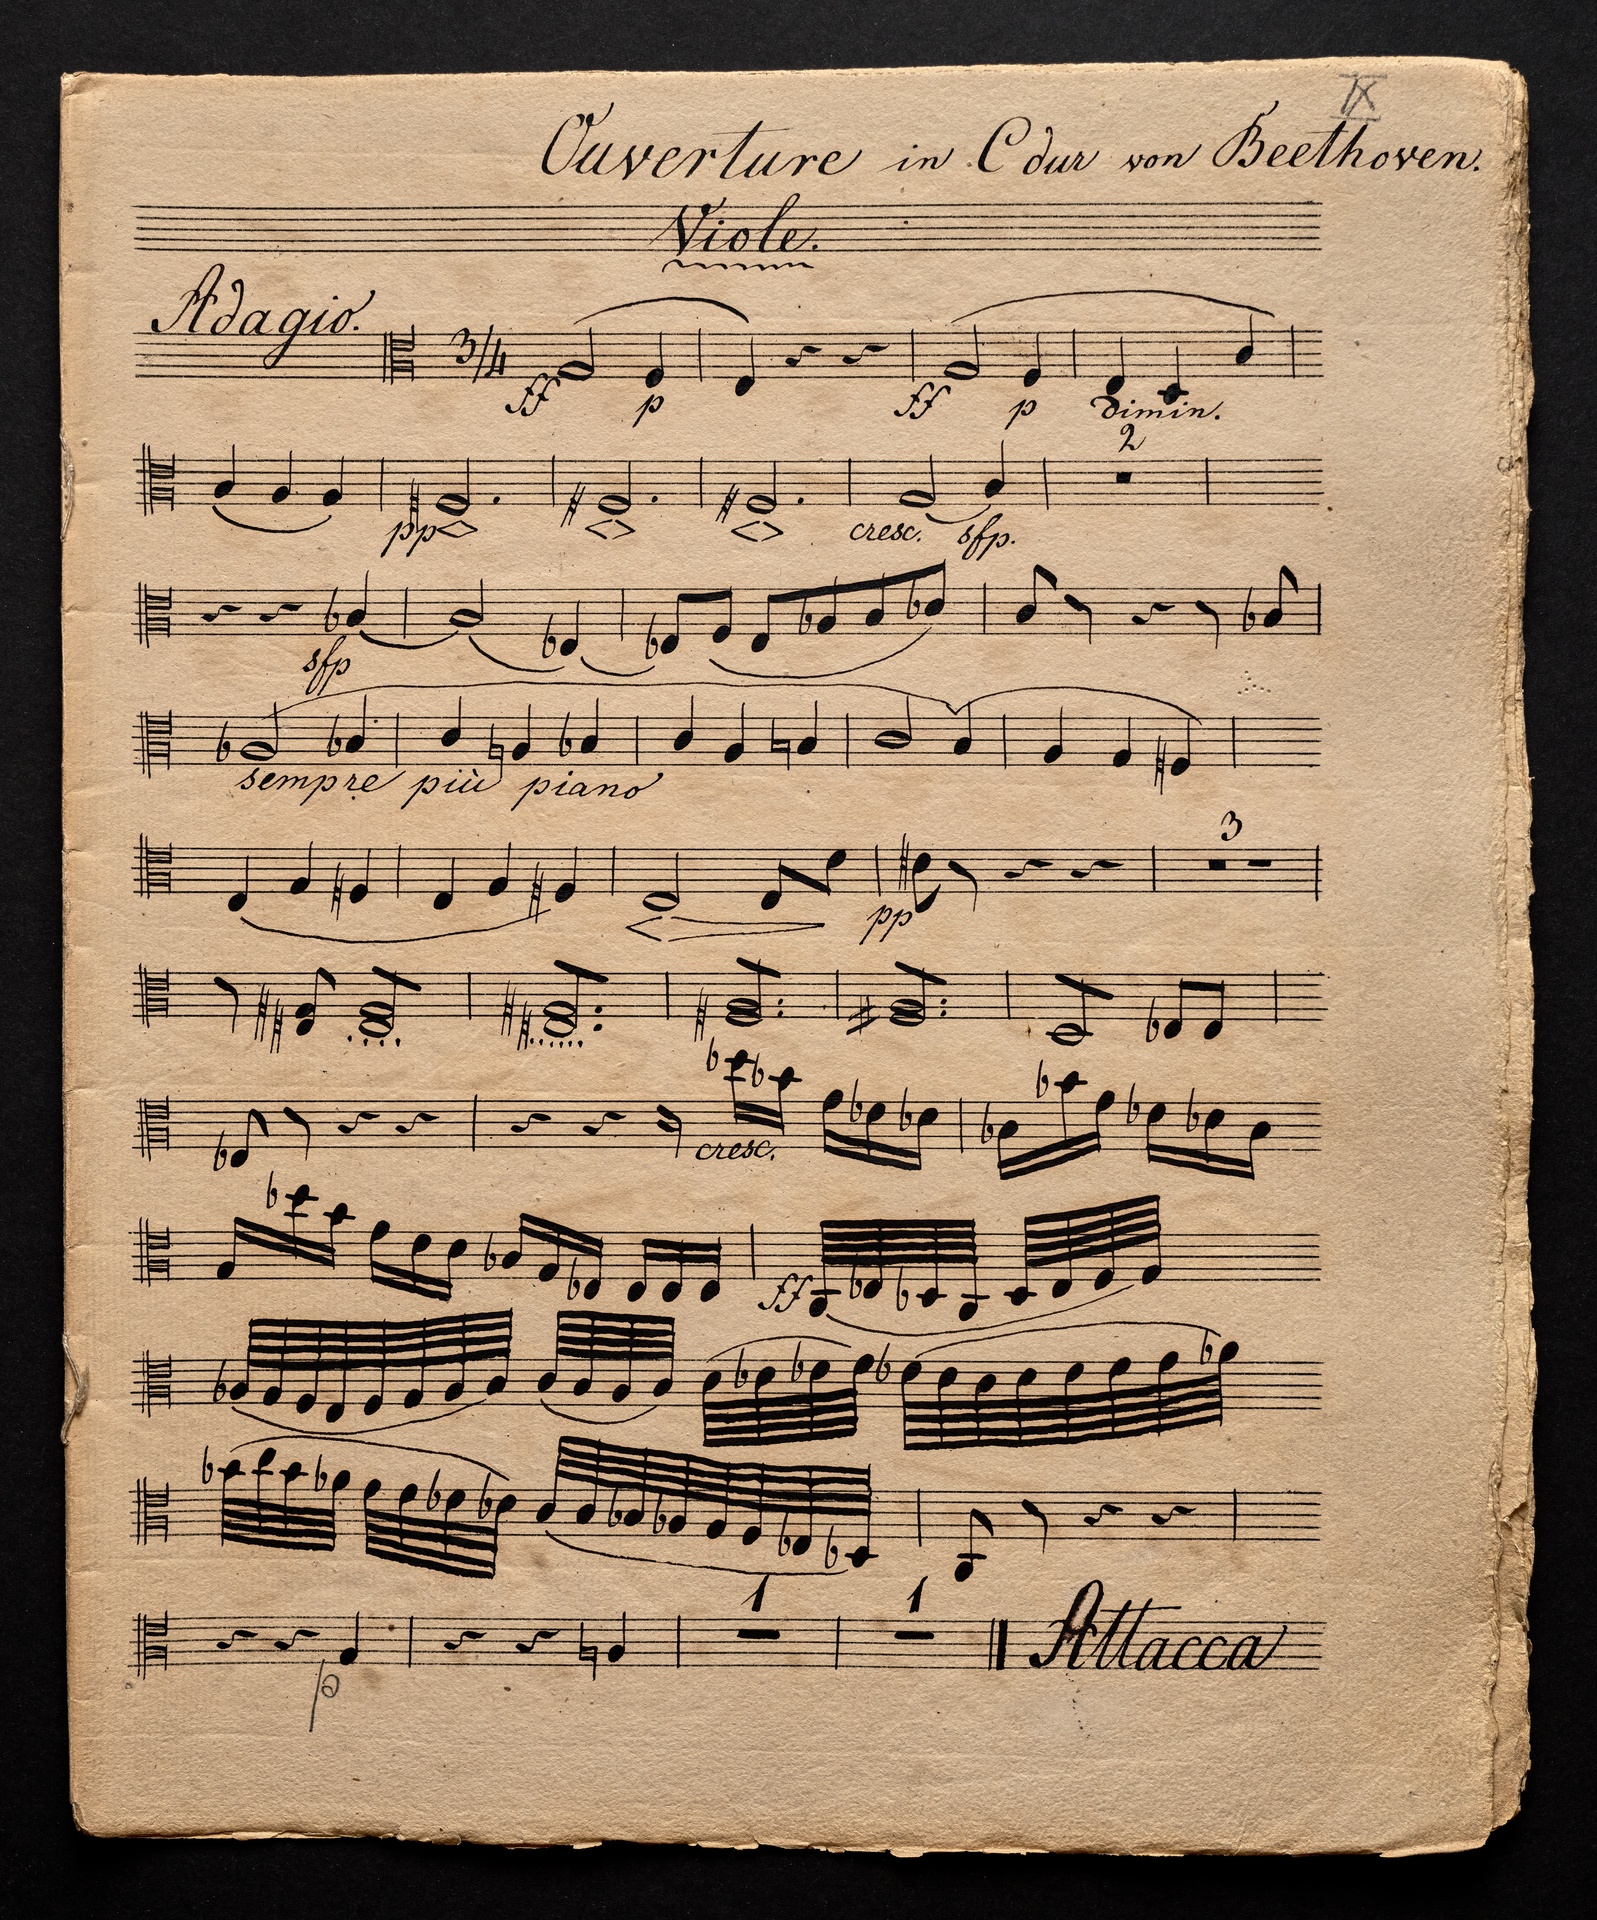 IX
Ouverture in C dur von Beethoven.
Viole.
Adagio.
3/4
ff p ff p dimin.
2
pp cresc. sfp.
sfp
sempre più piano
3
pp
cresc.
ff
1 1
Attacca
p